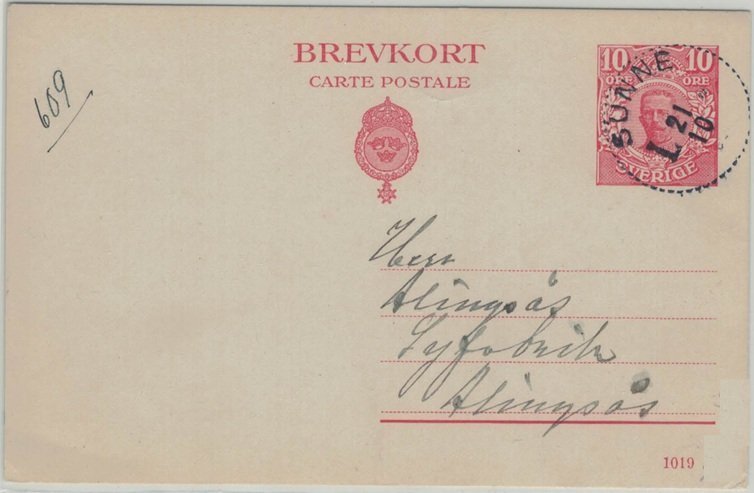 BREVKORT
CARTE POSTALE
609
10 10
ÖRE ÖRE
SVERIGE
SUNNE
21
10
L
Herr
Alingsås
Syfabrik
Alingsås
1019